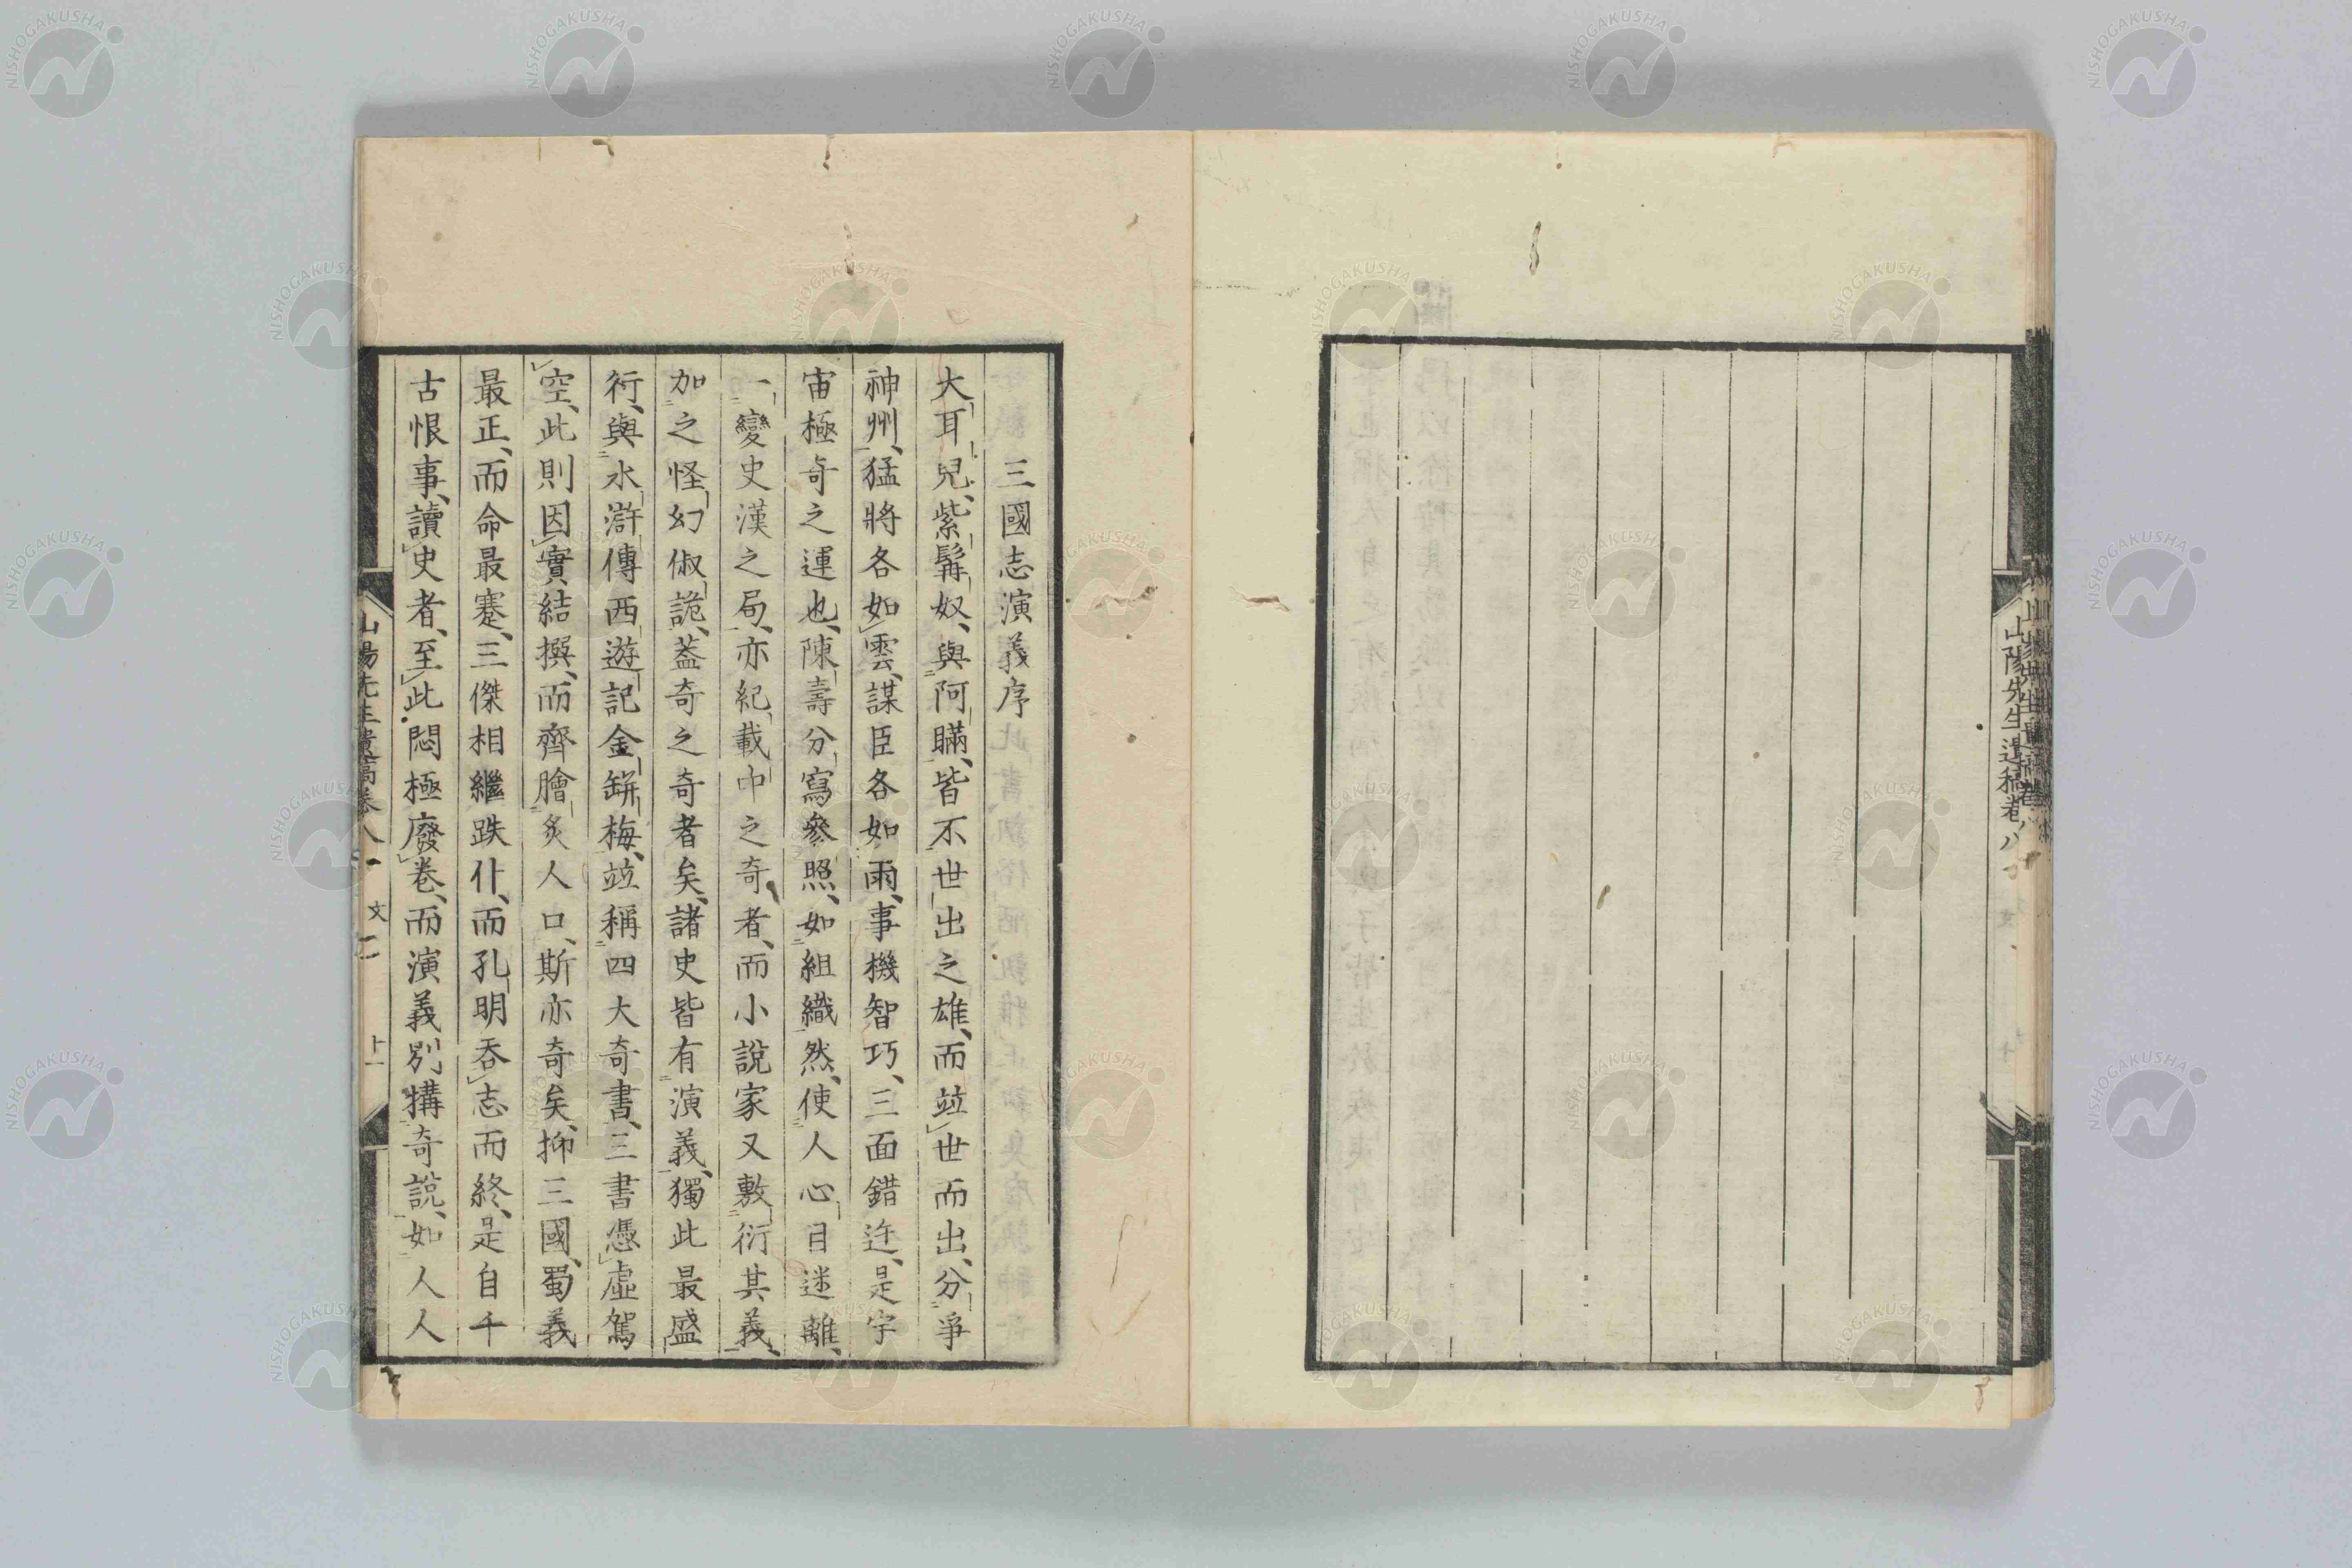 山陽先生遺稿卷八
三國志演義序
大耳兒、紫髯奴、與阿瞞、皆不世出之雄、而竝世而出、分爭
神州、猛將各如雲、謀臣各如雨、事機智巧、三面錯迕、是宇
宙極奇之運也、陳壽分寫參照、如組織然、使人心目迷離、
一變史漢之局、亦紀載中之奇者、而小說家又敷衍其義、
加之怪幻俶詭、蓋奇之奇者矣、諸史皆有演義、獨此最盛
行、與水滸傳西遊記金缾梅、竝稱四大奇書、三書憑虛駕
空、此則因實結撰、而齊膾炙人口、斯亦奇矣、抑三國、蜀義
最正、而命最蹇、三傑相繼跌仆、而孔明吞志而終、是自千
古恨事、讀史者、至此悶極廢卷、而演義別搆奇說、如人人
山陽先生遺稿卷八 文 十一
NISHOGAKUSHA